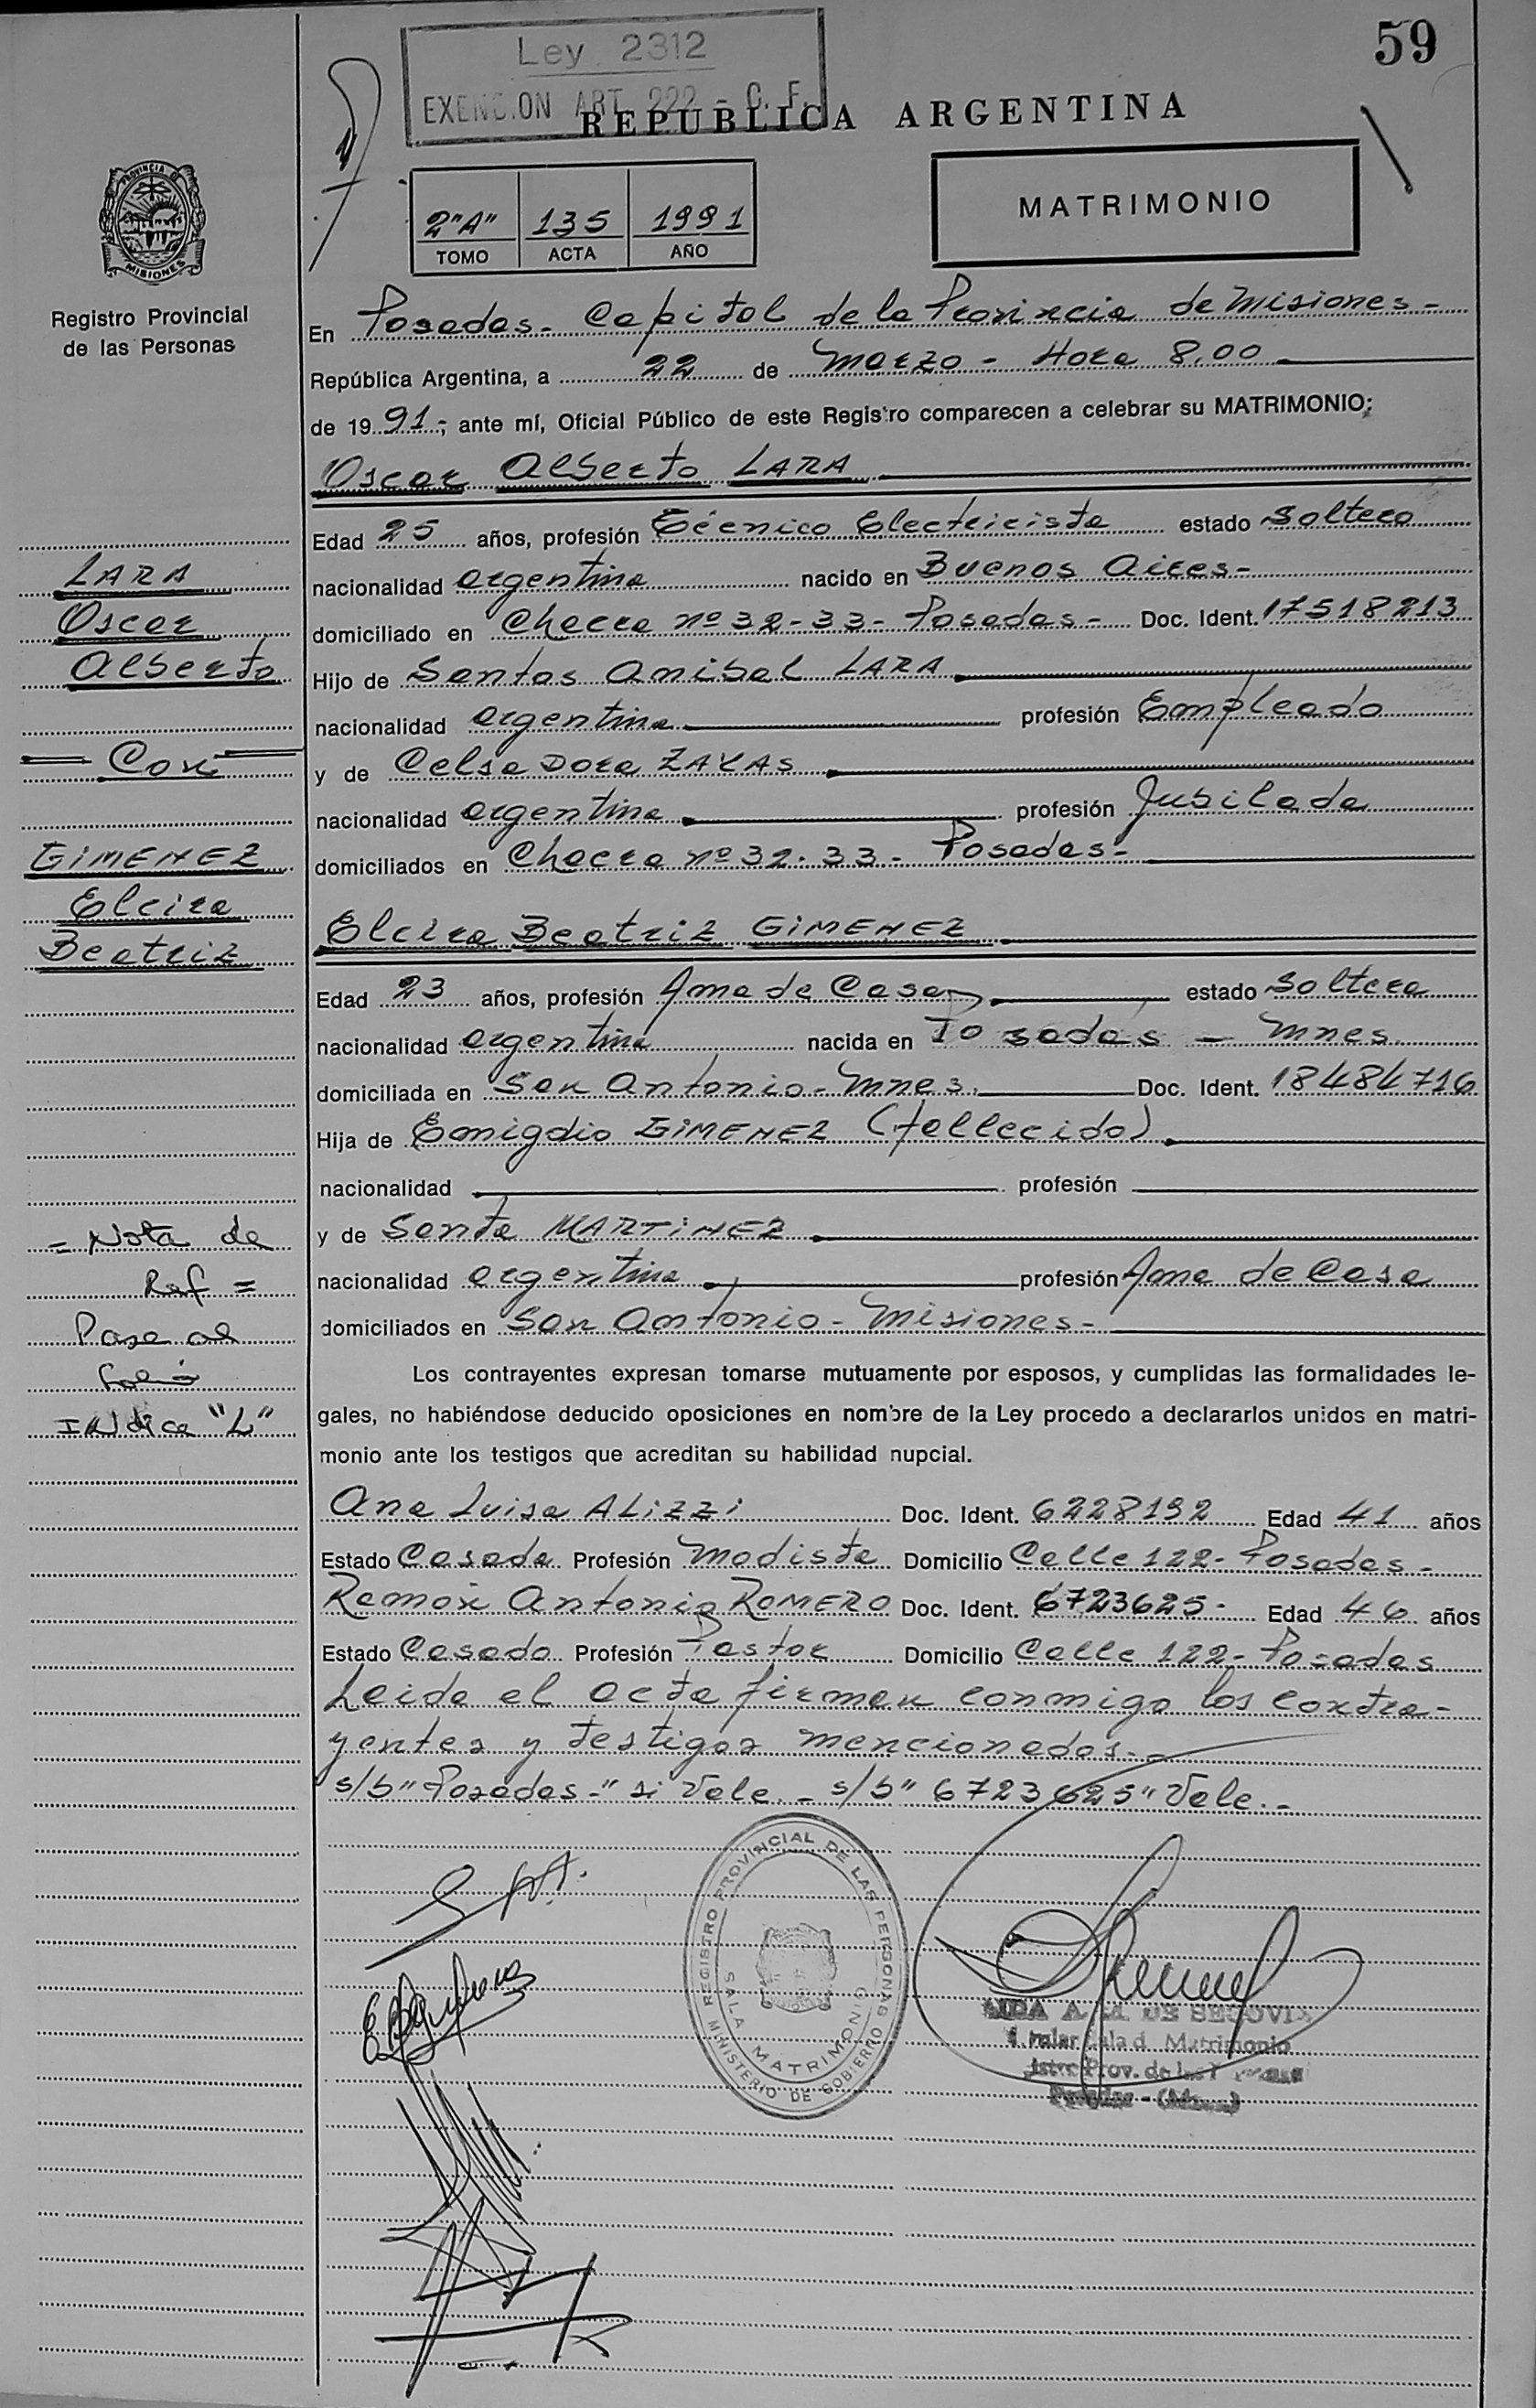 59
Ley 2312
EXENCION ART. 222 - C. F.
REPUBLICA ARGENTINA
PROVINCIA DE
MISIONES
Registro Provincial
de las Personas
2"A" 135 1991
TOMO ACTA AÑO
MATRIMONIO
En Posadas - Capital de la Provincia de Misiones -
República Argentina, a 22 de Marzo - Hora 8,00
de 1991 -; ante mí, Oficial Público de este Registro comparecen a celebrar su MATRIMONIO:
Oscar Alberto LARA
Edad 25 años, profesión Técnico Electricista estado Soltero
nacionalidad argentina nacido en Buenos Aires -
domiciliado en Chacra nº 32-33 - Posadas - Doc. Ident. 17518213
Hijo de Santos Anibal LARA
nacionalidad argentina profesión Empleado
y de Celsa Dora ZAYAS
nacionalidad argentina profesión Jubilada
domiciliados en Chacra nº 32-33 - Posadas -
Elcira Beatriz GIMENEZ
Edad 23 años, profesión Ama de Casa estado Soltera
nacionalidad argentina nacida en Posadas - Mnes.
domiciliada en San Antonio - Mnes. Doc. Ident. 18484716
Hija de Emigdio GIMENEZ (fallecido)
nacionalidad profesión
y de Santa MARTINEZ
nacionalidad argentina profesión Ama de Casa
domiciliados en San Antonio - Misiones -
Los contrayentes expresan tomarse mutuamente por esposos, y cumplidas las formalidades le-
gales, no habiéndose deducido oposiciones en nombre de la Ley procedo a declararlos unidos en matri-
monio ante los testigos que acreditan su habilidad nupcial.
Ana Luisa ALIZZI Doc. Ident. 6228192 Edad 41 años
Estado Casada Profesión Modista Domicilio Calle 122 - Posadas -
Ramón Antonio ROMERO Doc. Ident. 6723625 - Edad 46 años
Estado Casado Profesión Pastor Domicilio Calle 122 - Posadas
Leida el acta firman conmigo los contra-
yentes y testigos mencionados. -
s/b "Posadas -" si Vale. - s/b "6723625" Vale. -
LARA
Oscar
Alberto
= Con =
GIMENEZ
Elcira
Beatriz
= Nota de
Ref =
Pase al
folio
INdice "L"
REGISTRO PROVINCIAL DE LAS PERSONAS
MINISTERIO DE GOBIERNO
SALA MATRIMONIO
A. M. DE SEGOVIA
Sala d. Matrimonio
Prov. de las
Posadas - (Mnes.)